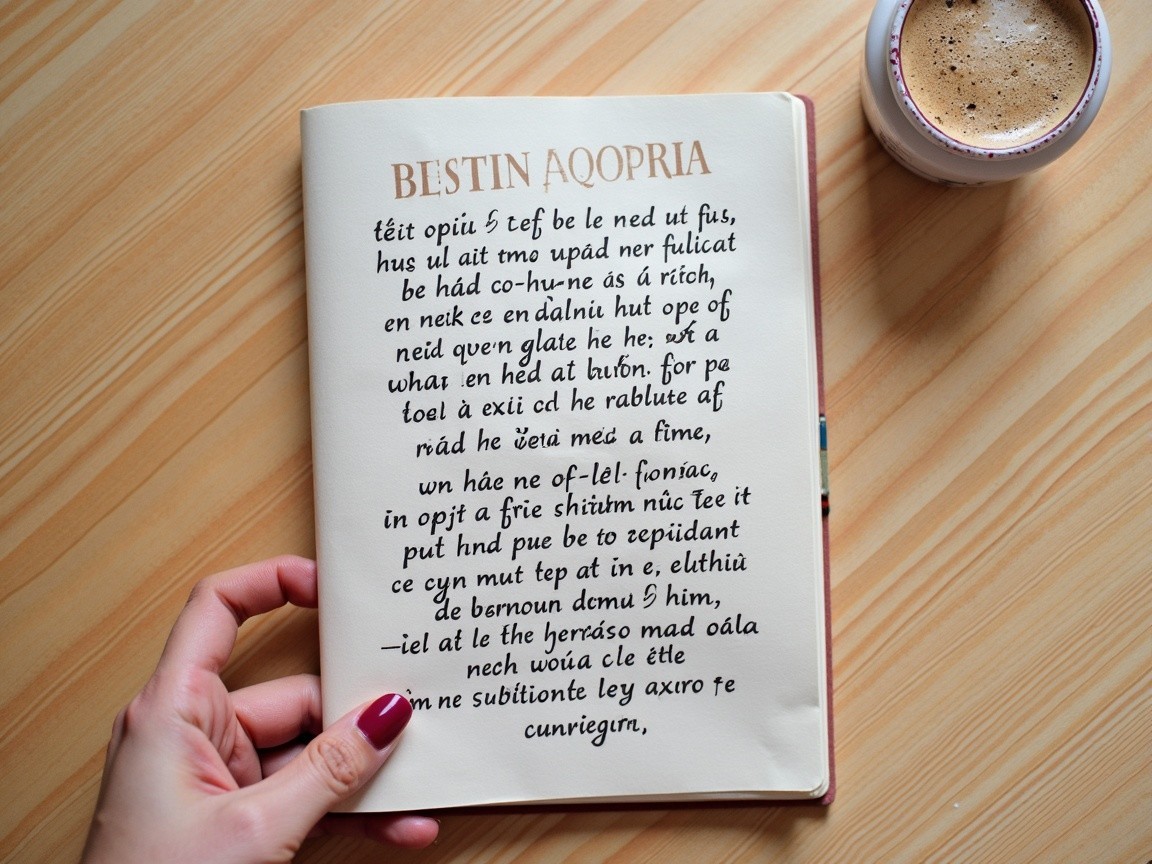 BESTIN AQOPRIA
téit opiu & cef be le ned ut fus,
hus ul ait tmo upád ner fulicat
be hád co-hu-ne ás á rítch,
en neik ce en dalniı hut ope of
neid que'n glate he he: a
what en hed at for pe
toel à exii cd he rablute af
he med a fime,
wn háe ne of-lèl· foníac,
in opjt a frie nûc Tee it
put hnd pue be to zepiidant
ce cyn mut tep at in e, eluthiù
de bernoun dcmu & him,
—iel at le the herráso mad oála
nech woúa cle étle
ne subitionte ley axıro fe